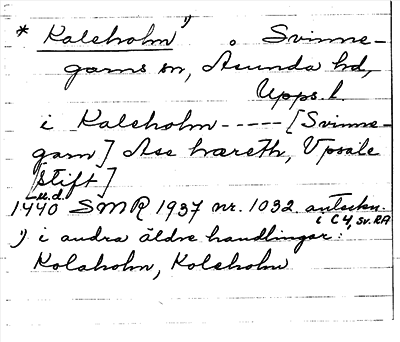 * Kaleholm 1) Svinne-
garns sn, Åsunda hd,
Upps. l.
i Kaleholm ----- [Svinne-
garn] Ase hæreth, Vpsale
[stift]
1440 u.d. SMR 1937 nr. 1032 anteckn.
i C 4, Sv. RA
1) i andra äldre handlingar:
Kolaholm, Koleholm